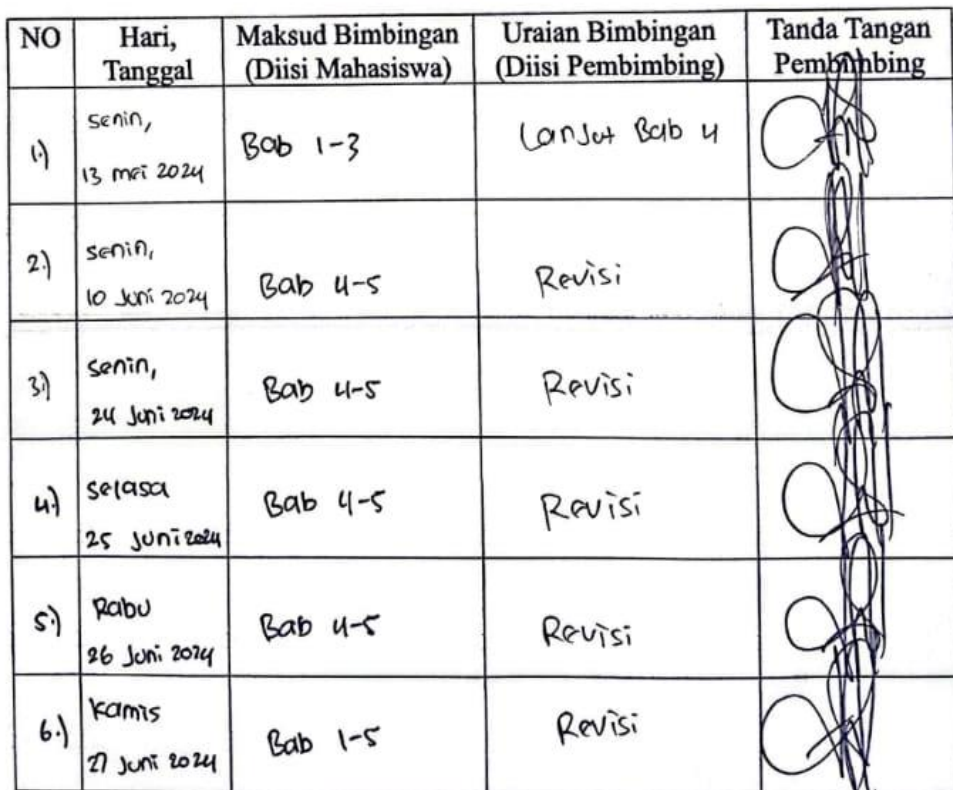 NO Hari, Tanggal Maksud Bimbingan (Diisi Mahasiswa) Uraian Bimbingan (Diisi Pembimbing) Tanda Tangan Pembimbing
1.) Senin, 13 mei 2024 Bab 1-3 Lanjut Bab 4
2.) Senin, 10 Juni 2024 Bab 4-5 Revisi
3.) Senin, 24 Juni 2024 Bab 4-5 Revisi
4.) Selasa 25 Juni 2024 Bab 4-5 Revisi
5.) Rabu 26 Juni 2024 Bab 4-5 Revisi
6.) Kamis 27 Juni 2024 Bab 1-5 Revisi